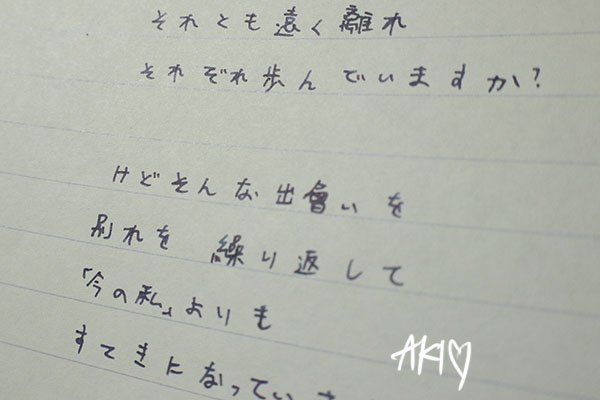 それとも遠く離れ
それぞれ歩んでいますか?
けどそんな出會いを
別れを 繰り返して
「今の私」よりも
すてきになってい
AKI♡